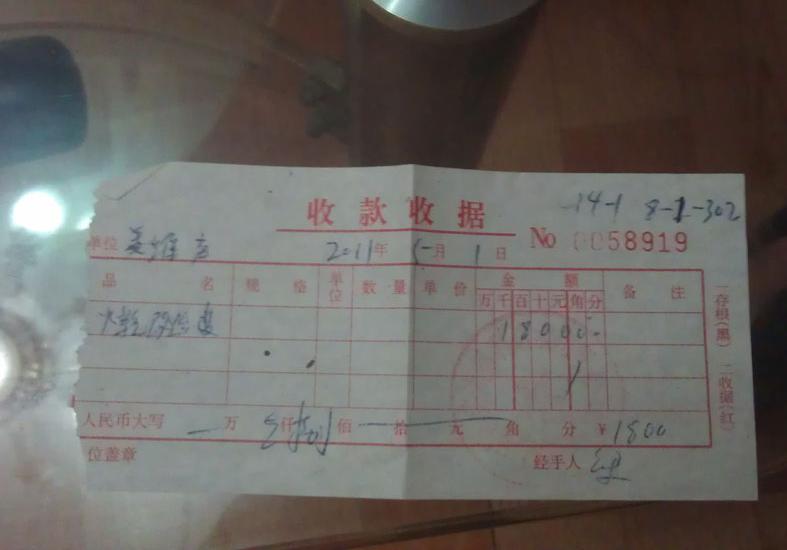 收款收据
14-1 8-1-302
单位 2011年 5月 1日 No 0058919
品名 规格 单位 数量 单价 金额 备注
万千百十元角分
180000
人民币大写 万 仟 捌佰 拾 元 角 分 ¥1800
位盖章 经手人
一存根(黑) 二收据(红)